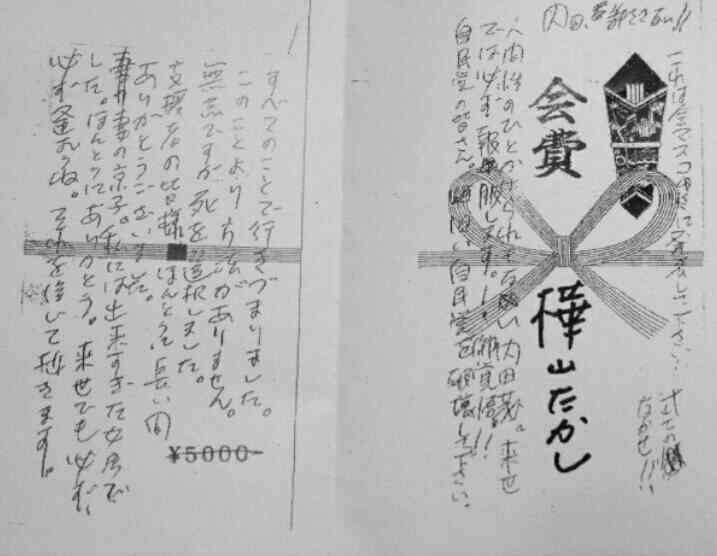 これは全マスコミに発表して下さい。
内田、許さない!!
人間性のひとかけらもない内田茂。来世
では必ず報復します！御覚悟!!
自民党の皆さん。旧い自民党を破壊して下さい。
会費
樺山たかし
すべてのことで行きづまりました。
このことより方法がありません。
無念ですが死を選択しました。
支援者の皆様 ほんとうに長い間
ありがとうございました。
妻の京子。私には出来すぎた女房で
した。ほんとうにありがとう。来世でも必ず、
必ず逢おうね。それを信じて逝きます。
¥5000-